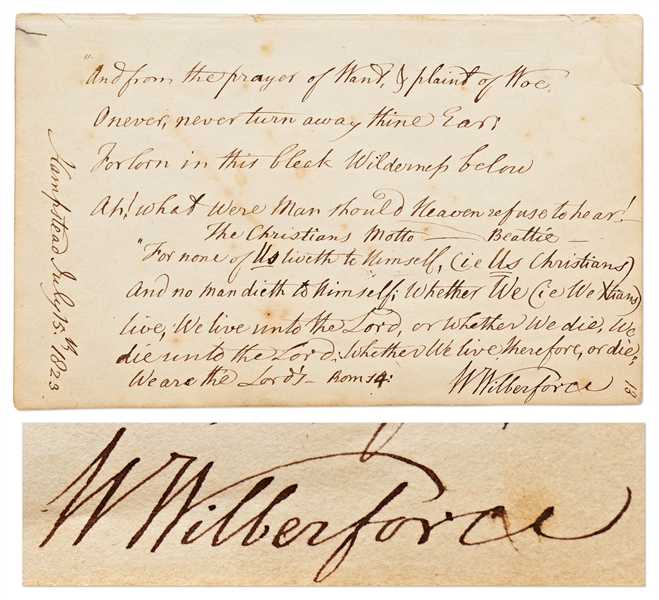 "And from the prayer of Want, & plaint of Woe,
O never, never turn away thine Ear;
Forlorn in this bleak Wilderness below
Ah! what were Man should Heaven refuse to hear!
The Christians Motto — Beattie —
"For none of Us liveth to Himself, (ie Us Christians)
And no man dieth to Himself; Whether We (ie We Xtians)
live, We live unto the Lord, or whether We die, We
die unto the Lord: Whether We live therefore, or die,
We are the Lord's — Rom 14:
W Wilberforce
13
Hampstead July 15.th 1823.
W Wilberforce